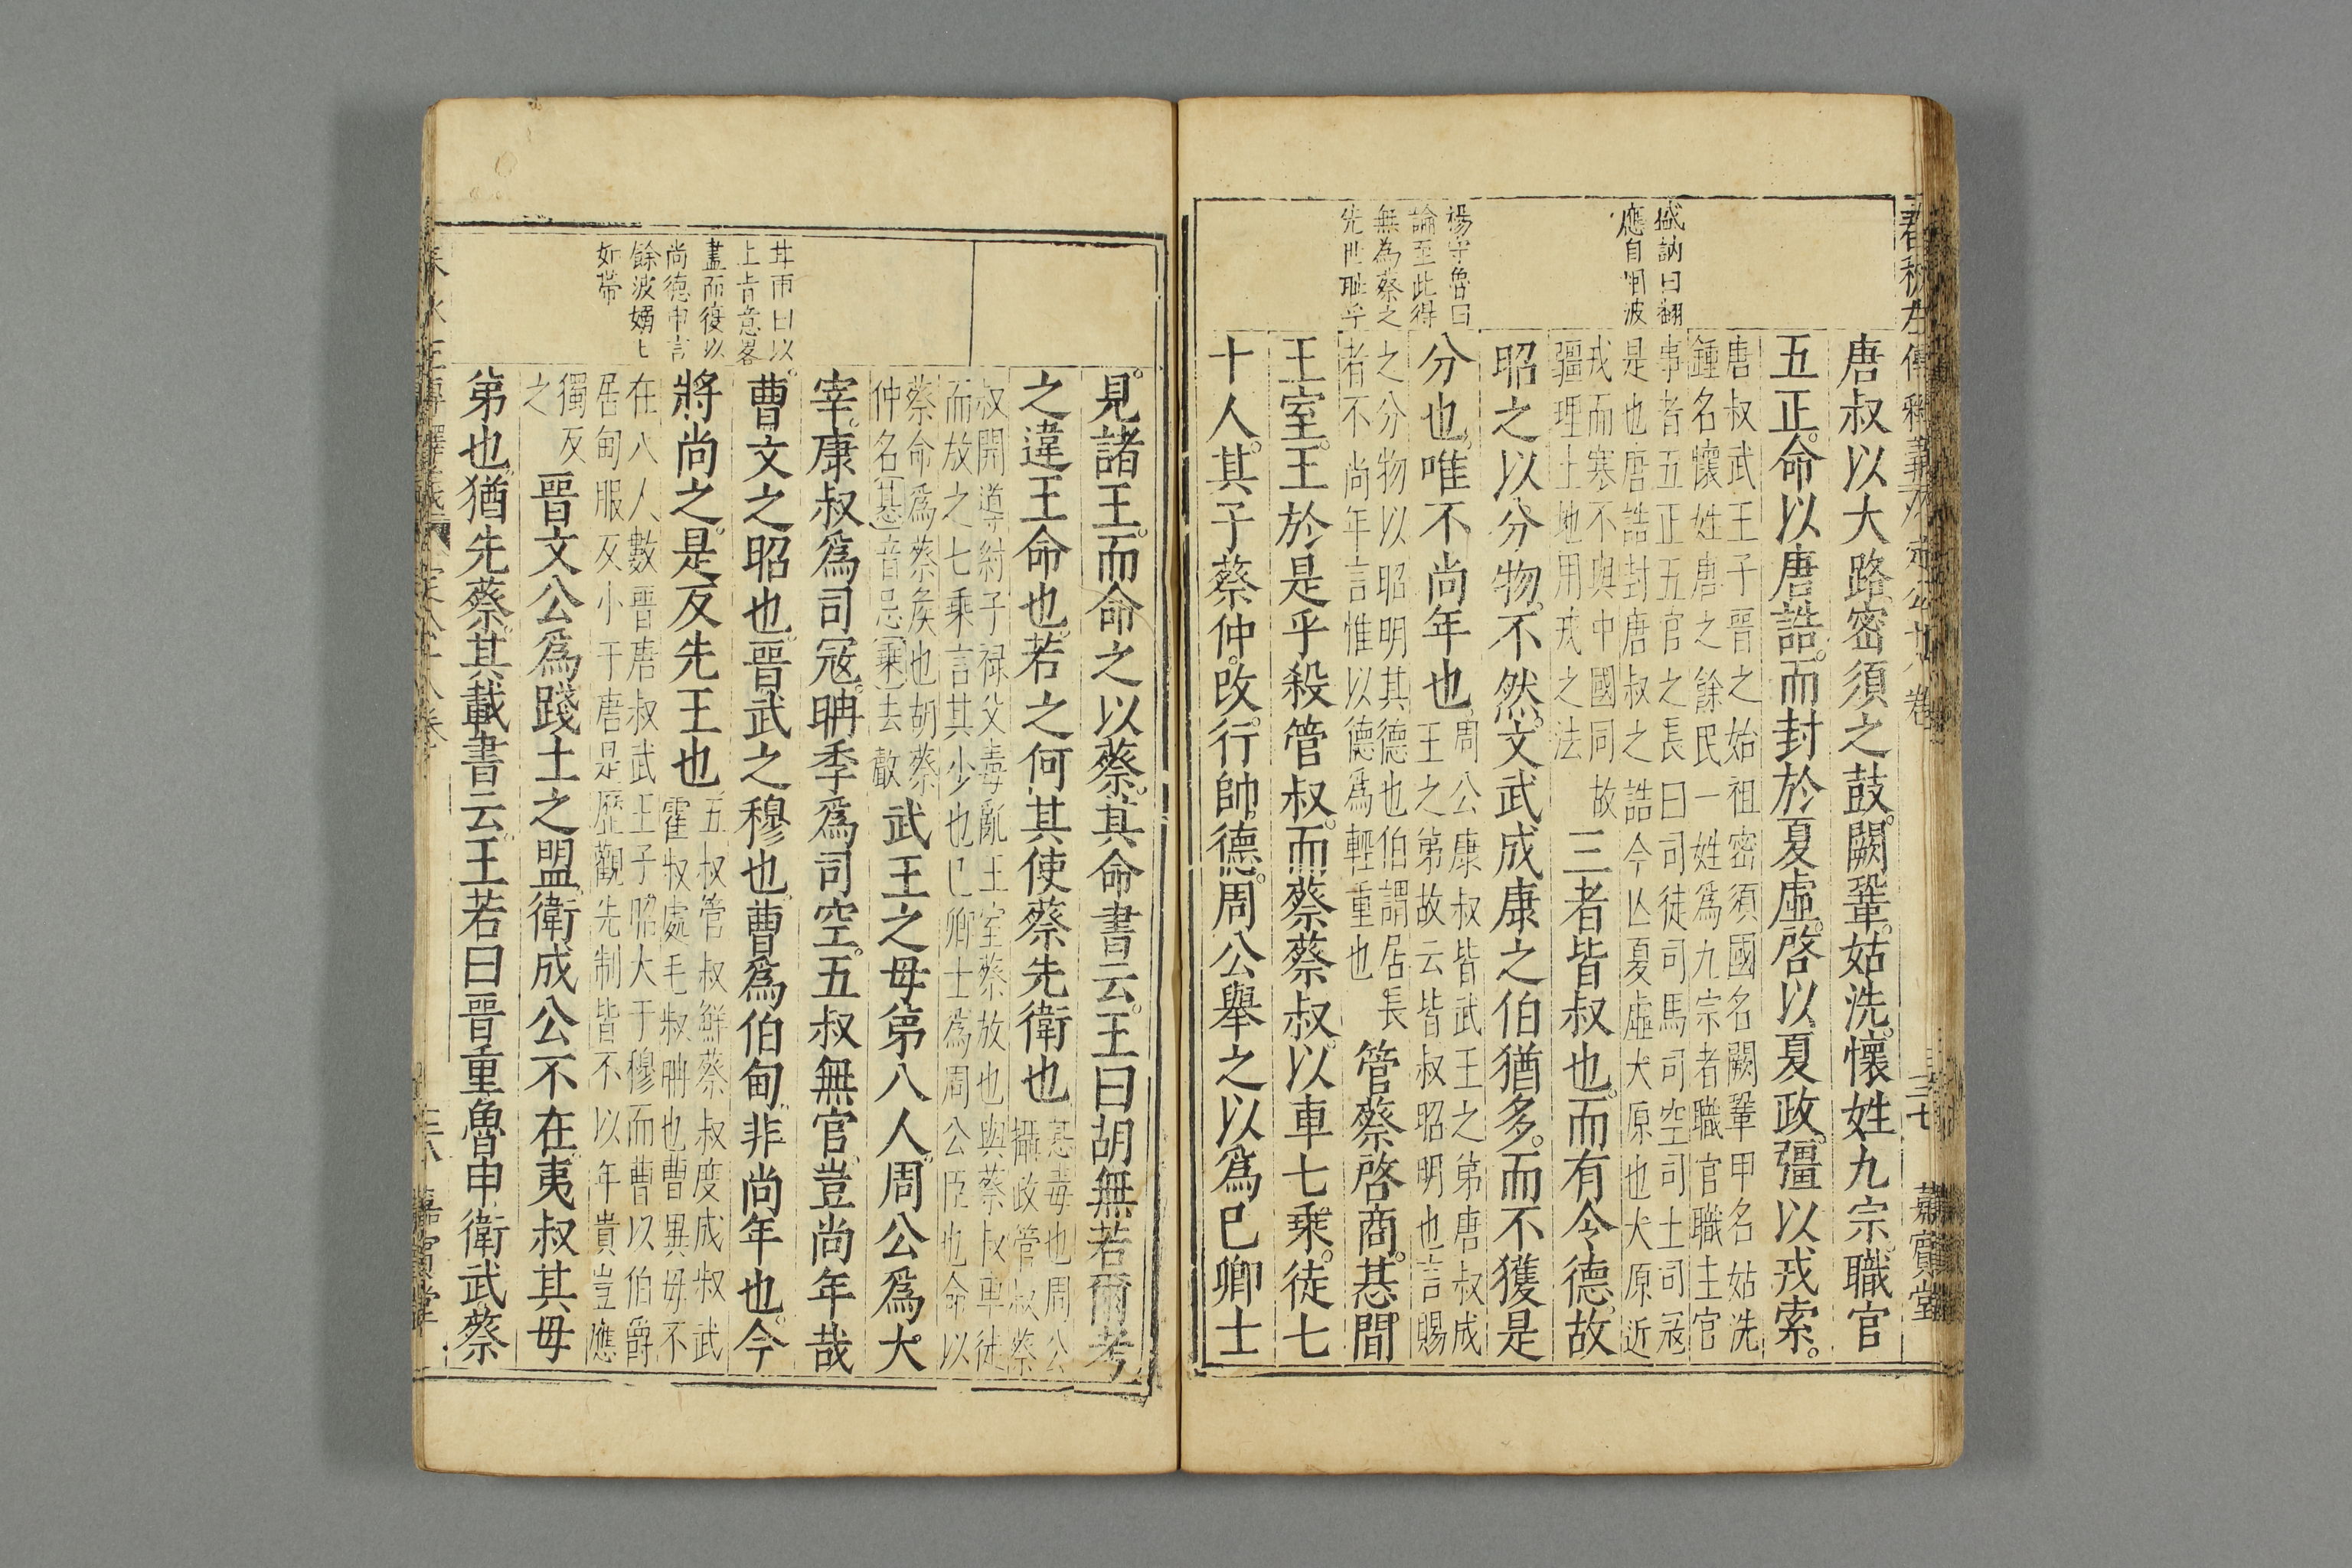 唐叔以大路密須之鼓闕鞏姑洗懷姓九宗職官
五正命以唐誥而封於夏虛啓以夏政彊以戎索
唐叔武王子晉之始祖密須國名闕鞏甲名姑洗
鍾名懷姓唐之餘民一姓爲九宗者職官職主官
事者五正五官之長曰司徒司馬司空司土司寇
是也唐誥封唐叔之誥今亾夏虛大原也大原近
戎而寒不與中國同故
疆理土地用戎之法
三者皆叔也而有令德故
昭之以分物不然文武成康之伯猶多而不獲是
分也唯不尚年也
周公康叔皆武王之弟唐叔成
王之弟故云皆叔昭明也言賜
之分物以昭明其德也伯謂居長
者不尚年言惟以德爲輕重也
管蔡啓商惎間
王室王於是乎殺管叔而蔡蔡叔以車七乘徒七
十人其子蔡仲改行帥德周公舉之以爲已卿士
應自悃波
楊守魯曰
論至此得
無為蔡之
先世耻乎
三七
嘉賓堂
見諸王而命之以蔡其命書云王曰胡無若爾考
之違王命也若之何其使蔡先衛也
惎毒也周公
攝政管叔蔡
叔開道紂子祿父毒亂王室蔡放也與蔡叔車徒
而放之七乘言其少也已卿士爲周公臣也命以
蔡命爲蔡矦也胡蔡
仲名惎音忌乘去聲
武王之母弟八人周公爲大
宰康叔爲司寇聃季爲司空五叔無官豈尚年哉
曹文之昭也晉武之穆也曹爲伯甸非尚年也今
將尚之是反先王也
五叔管叔鮮蔡叔度成叔武
霍叔處毛叔聃也曹異母不
在八人數晉唐叔武王子昭大于穆而曹以伯爵
居甸服反小于唐是歷觀先制皆不以年貴豈應
獨反
之
晉文公爲踐土之盟衛成公不在夷叔其母
弟也猶先蔡其載書云王若曰晉重魯申衛武蔡
上肯意畧
盡而復以
尚德申言
如帶
嘉賓堂